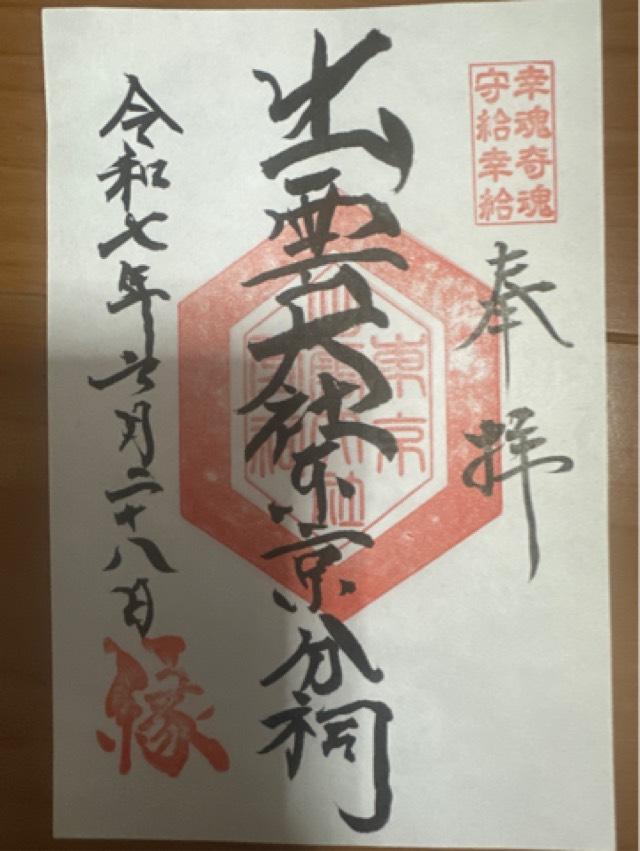 幸魂奇魂
守給幸給
奉拝
出雲大社東京分祠
東京
出雲大社
分祠
令和七年六月二十八日
縁